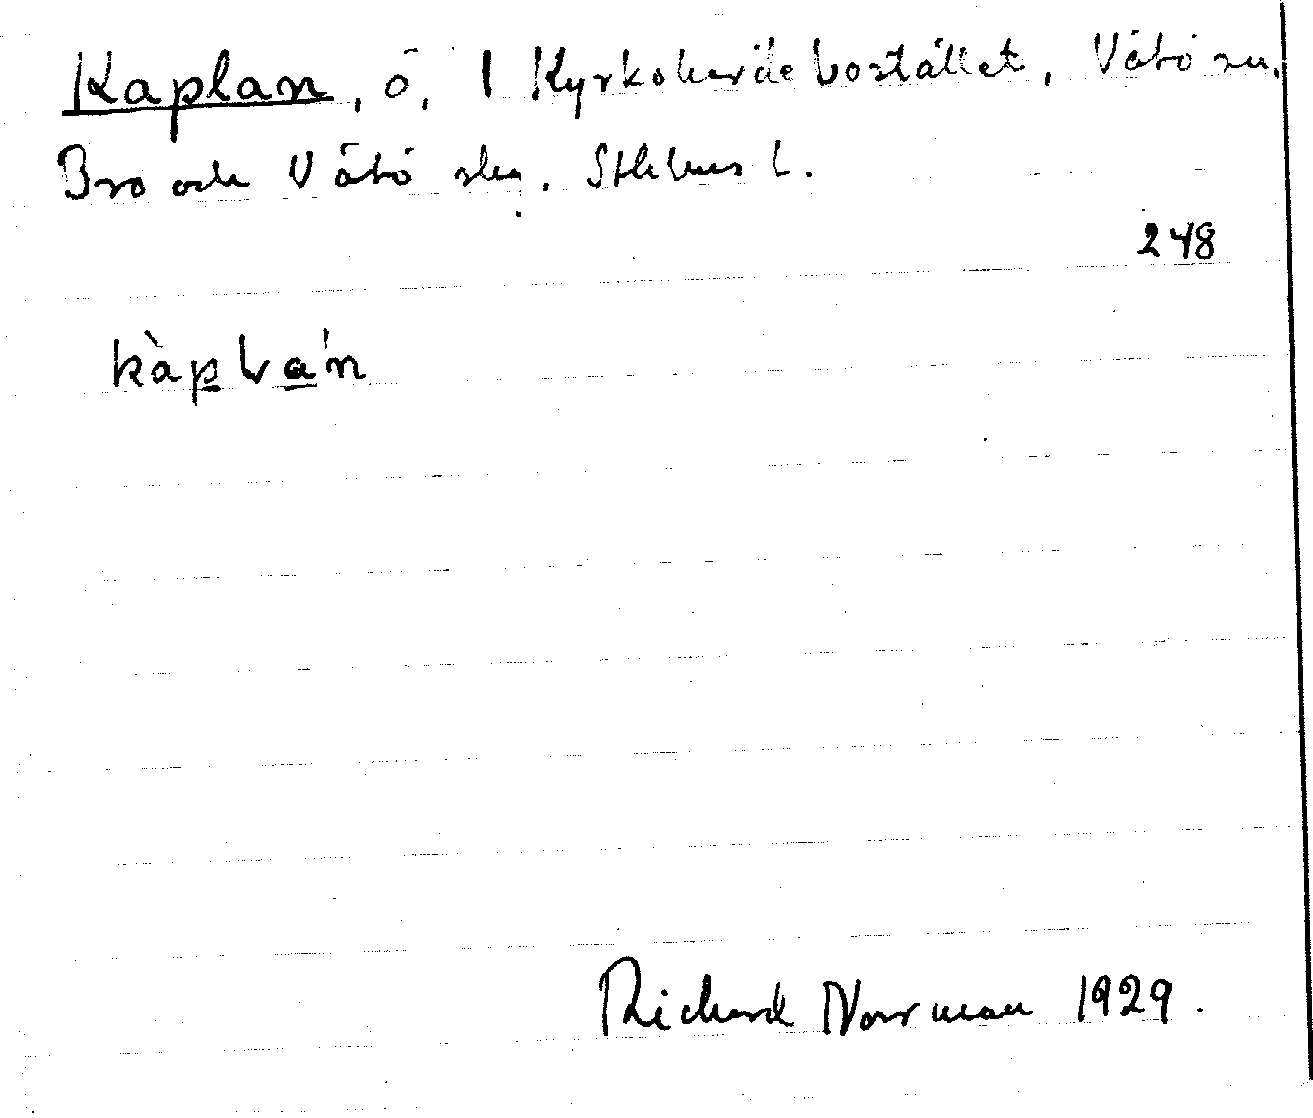 Kaplan, ö, 1 Kyrkoherdebostället, Vätö sn.
Bro och Vätö skg. Sthlms l.
248
kàpla'n
Richard Norrman 1929.